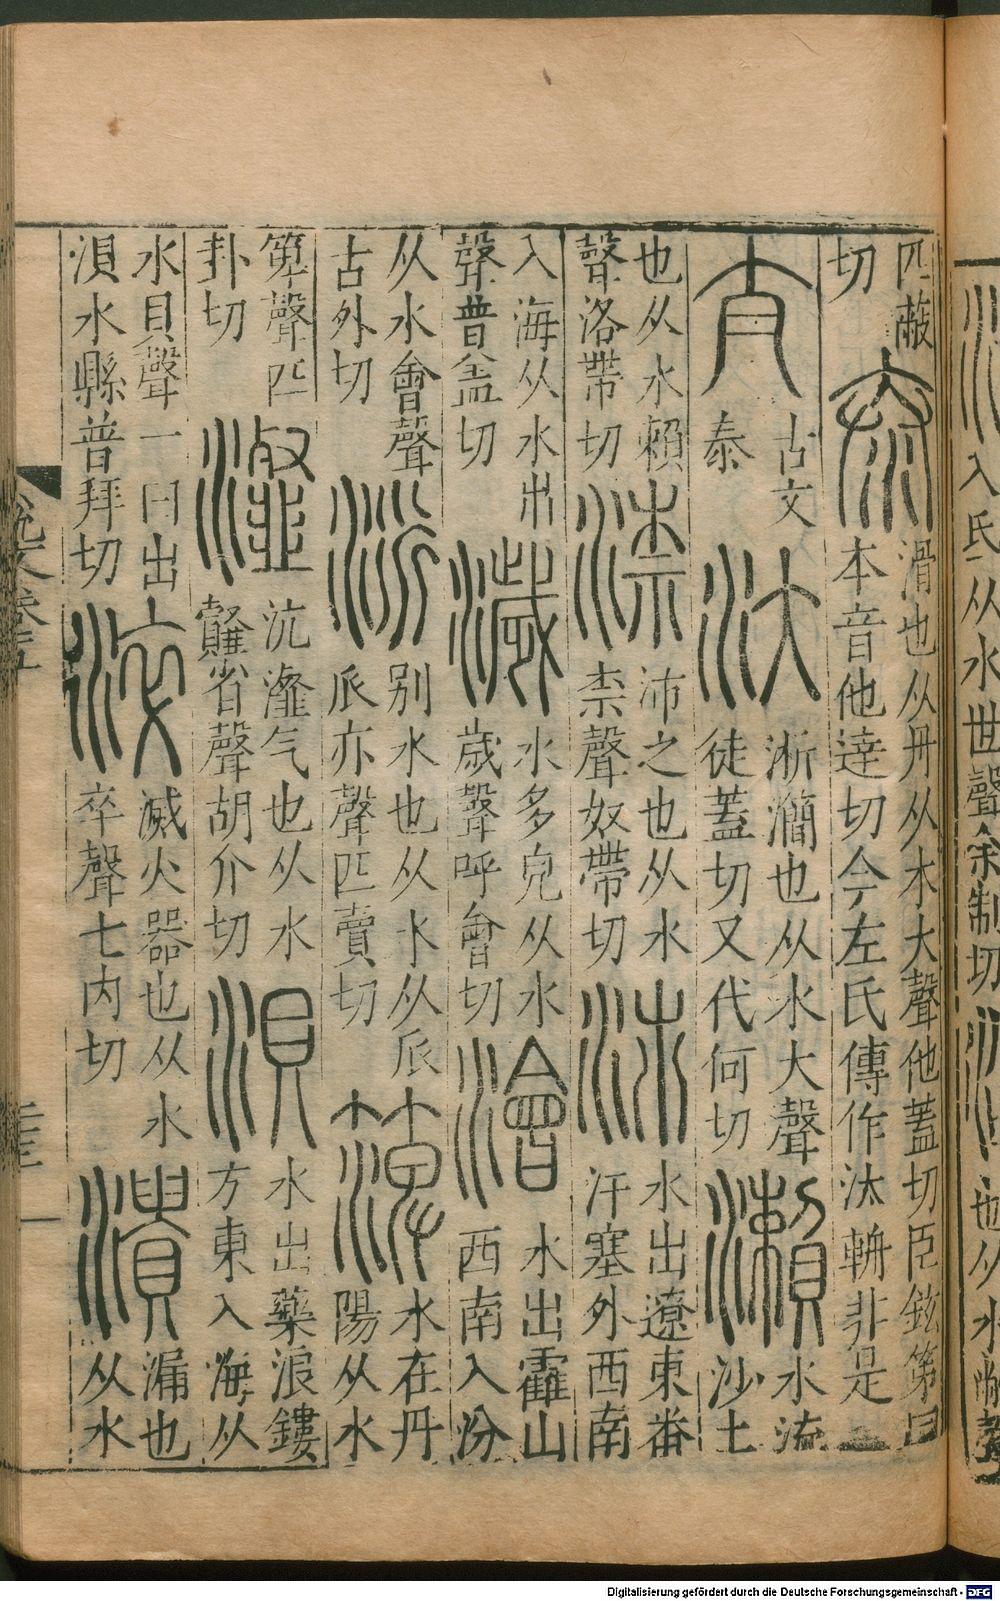 入氐从水世聲余制切
也从水
匹蔽
切
泰
滑也从廾从水大聲他蓋切臣鉉等曰
本音他達切今左氏傳作汰輈非是
夳
古文
泰
汏
淅瀾也从水大聲
徒蓋切又代何切
瀨
水流
沙上
也从水賴
聲洛帶切
渿
沛之也从水
柰聲奴帶切
沛
水出遼東番
汗塞外西南
入海从水𣎵
聲普蓋切
濊
水多皃从水
歲聲呼會切
澮
水出霍山
西南入汾
从水會聲
古外切
派
别水也从水从𠂢
𠂢亦聲匹賣切
水在丹
陽从水
箄聲匹
卦切
瀣
沆瀣气也从水
省聲胡介切
浿
水出樂浪鏤
方東入海从
水貝聲一曰出
浿水縣普拜切
淬
滅火器也从水
卒聲七内切
潰
漏也
从水
Digitalisierung gefördert durch die Deutsche Forschungsgemeinschaft - DFG